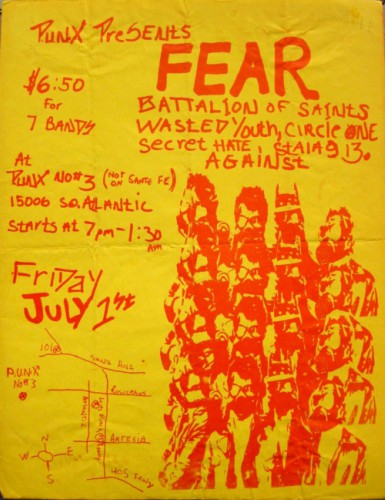 PUNX PRESENTS
FEAR
$6:50
for
7 BANDS
BATTALION OF SAINTS
WASTED Youth, CIRCLE ONE
Secret HATE, STALAG 13.
AGAINST
At
PUNX NO#3 (NOT ON SANTA FE)
15006 SO. ATLANTIC
Starts at 7pm-1:30
AM
FRIDAY
JULY 1st
SANTA ANA
P.U.N.X
NO#3
ARTESIA
N
W E
S